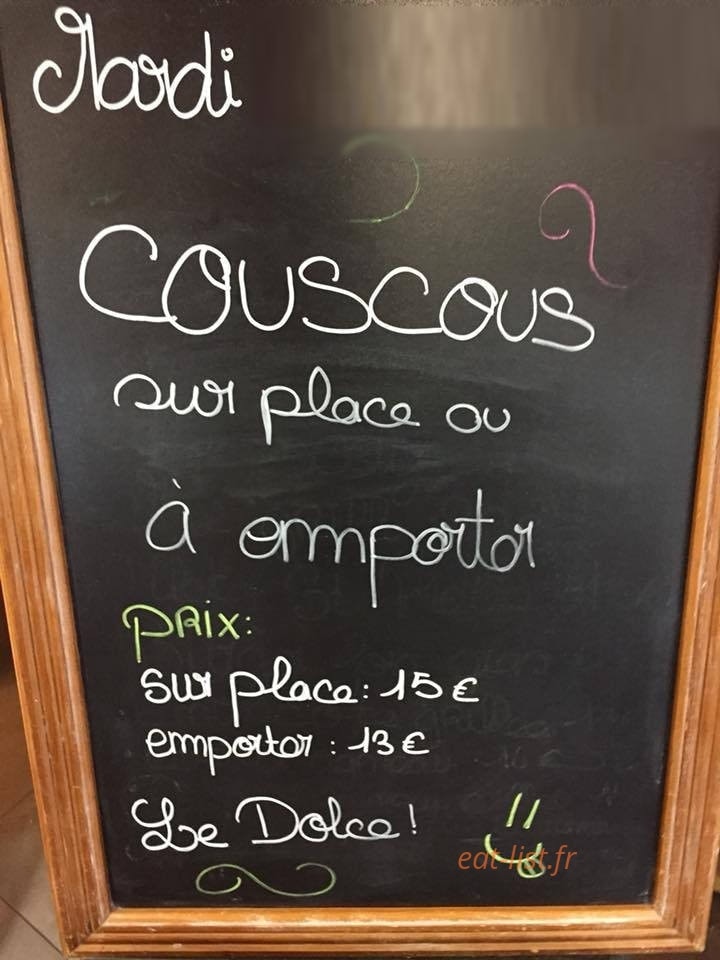 Mardi
COUSCOUS
sur place ou
à emporter
PRIX:
sur place: 15€
emporter: 13€
Le Dolce!
eat-list.fr